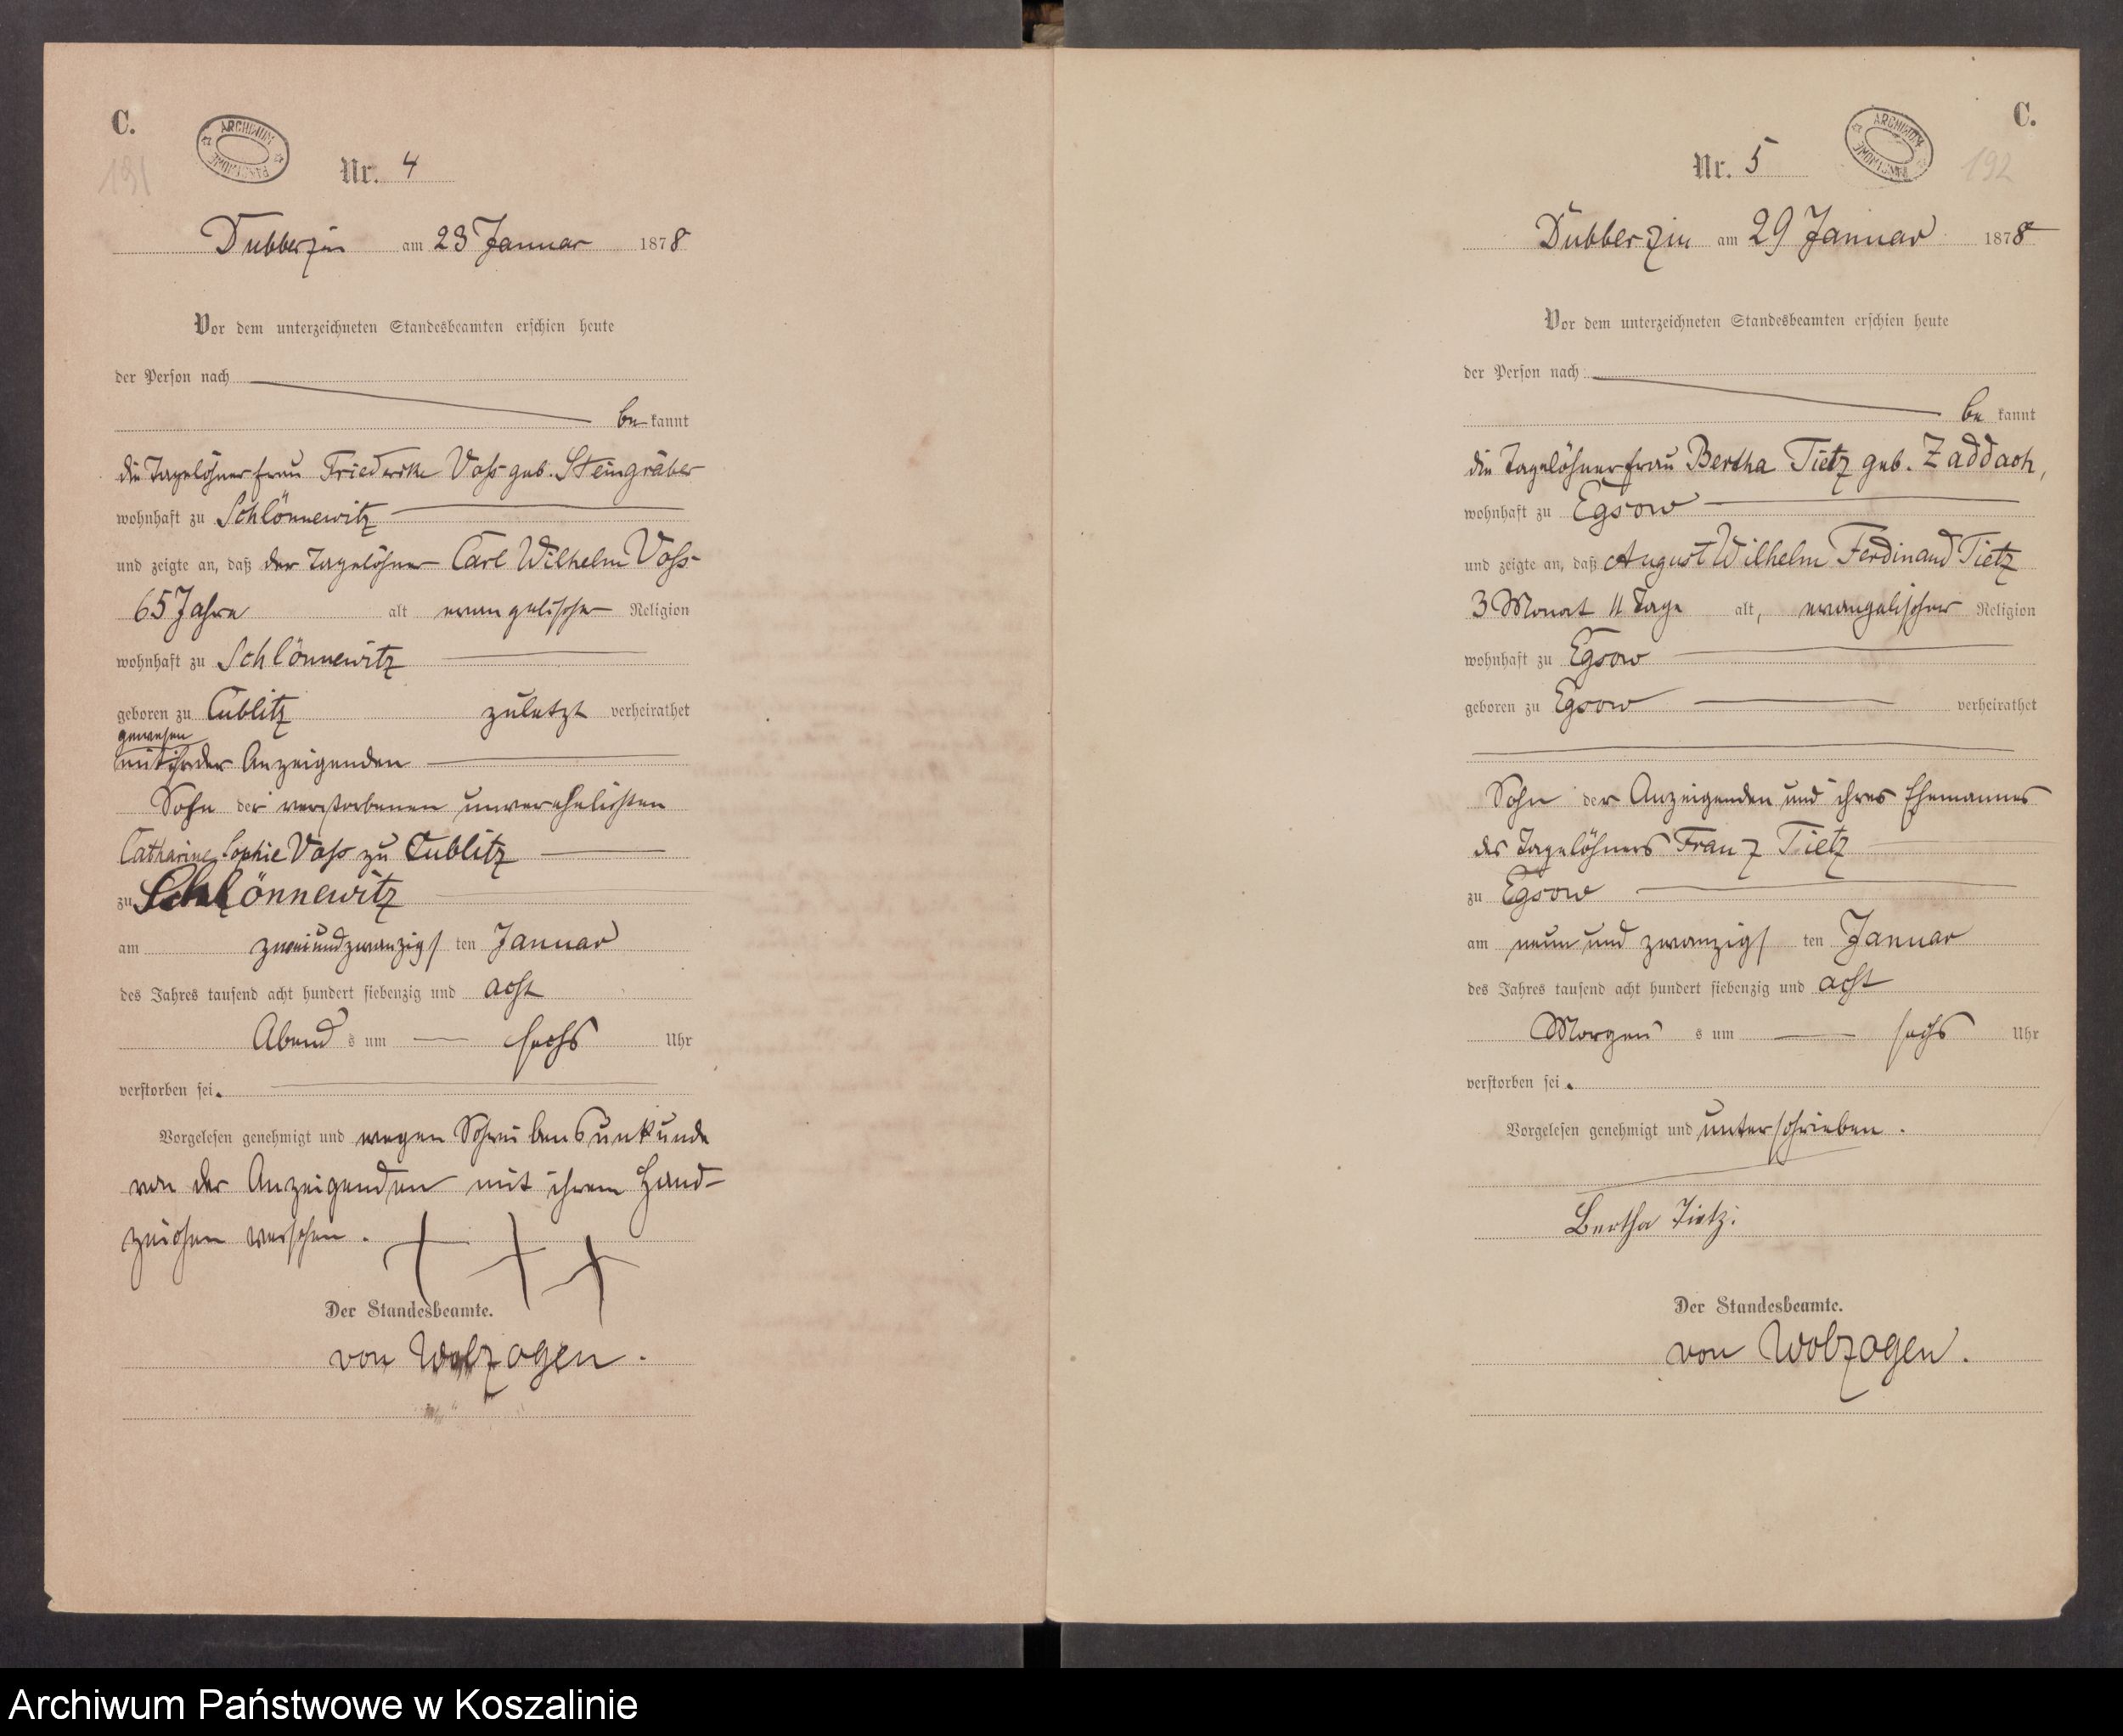 C.
191
ARCHIWUM PAŃSTWOWE
Nr. 4
Dubberzin am 23 Januar 1878
Vor dem unterzeichneten Standesbeamten erschien heute
der Person nach
be kannt
die Tagelöhnerfrau Friederike Voss geb. Steingräber
wohnhaft zu Schlönnewitz
und zeigte an, daß der Tagelöhner Carl Wilhelm Voss
65 Jahre alt evangelischer Religion
wohnhaft zu Schlönnewitz
geboren zu Cublitz zuletzt verheirathet
gewesen
mit der Anzeigenden
Sohn der verstorbenen unverehelichten
Catharine Sophie Voss zu Cublitz
zu Schlönnewitz
am zweiundzwanzigs ten Januar
des Jahres tausend acht hundert siebenzig und acht
Abend s um sechs Uhr
verstorben sei.
Vorgelesen genehmigt und wegen Schreibensunkunde
von der Anzeigenden mit ihrem Hand-
zeichen versehen. + + +
Der Standesbeamte.
von Wolzogen.
C.
192
ARCHIWUM PAŃSTWOWE
Nr. 5
Dubberzin am 29 Januar 1878
Vor dem unterzeichneten Standesbeamten erschien heute
der Person nach
be kannt
die Tagelöhnerfrau Bertha Tietz geb. Zaddach,
wohnhaft zu Egsow
und zeigte an, daß August Wilhelm Ferdinand Tietz
3 Monat 11 Tage alt, evangelischer Religion
wohnhaft zu Egsow
geboren zu Egsow verheirathet
Sohn der Anzeigenden und ihres Ehemannes
des Tagelöhners Franz Tietz
zu Egsow
am neun und zwanzigs ten Januar
des Jahres tausend acht hundert siebenzig und acht
Morgen s um sechs Uhr
verstorben sei.
Vorgelesen genehmigt und unterschrieben.
Bertha Tietz.
Der Standesbeamte.
von Wolzogen.
Archiwum Państwowe w Koszalinie